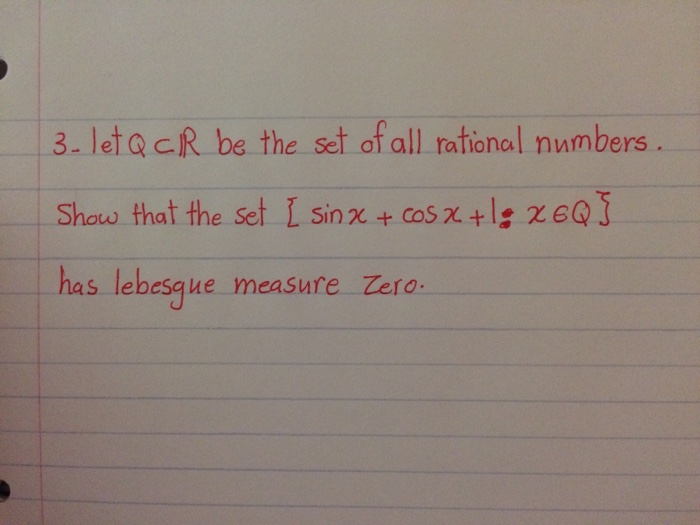 3- let Q ⊂ ℝ be the set of all rational numbers.
Show that the set { sin x + cos x + 1 : x ∈ Q }
has lebesgue measure Zero.